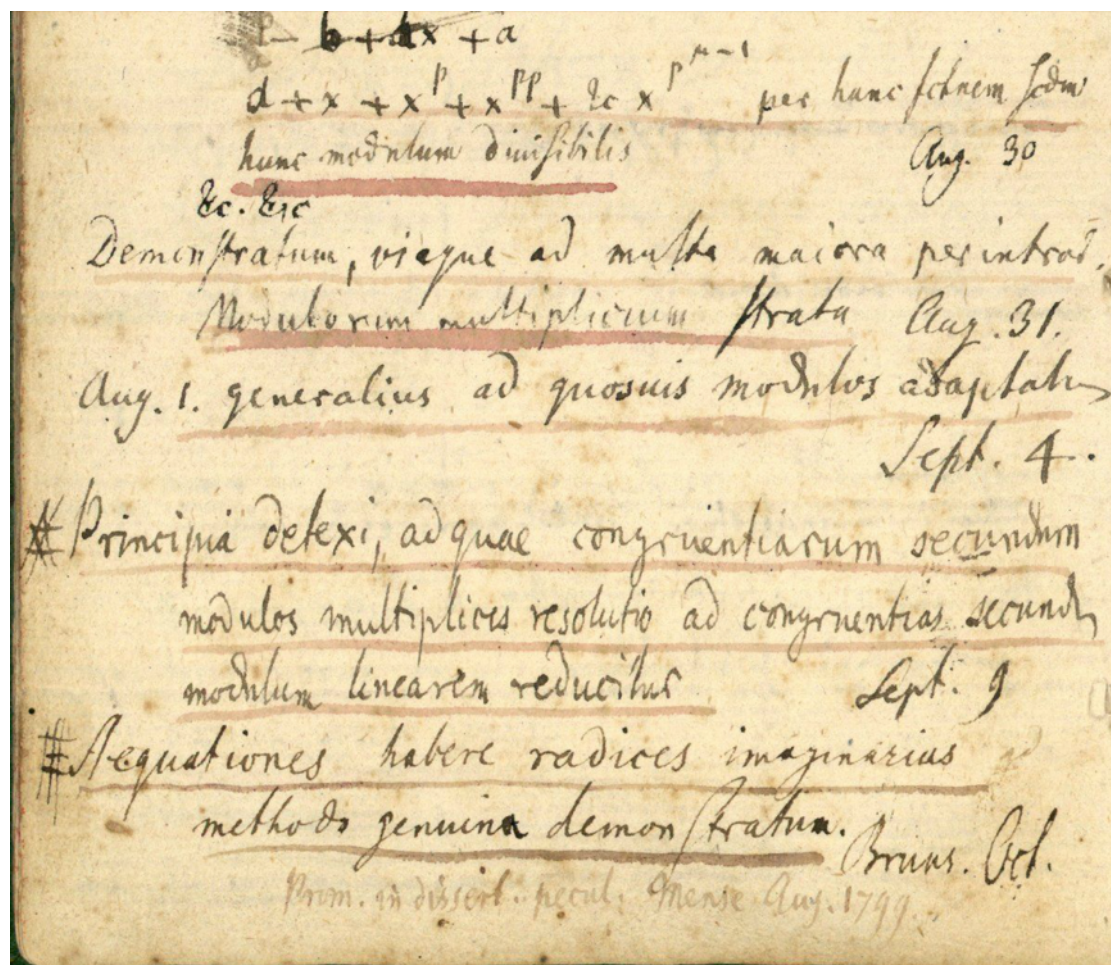 - b + dx + a
d + x + x^p + x^pp + &c x^p^μ-1 per hunc fctnem scdm
hunc modulum divisibilis Aug. 30
&c. &c
Demonstratum, viaque ad multa maiora per introd.
Modulorum multiplicium strata Aug. 31.
Aug. 1. generalius ad quosuis modulos adaptatu
Sept. 4.
Principia detexi, ad quae congruentiarum secundum
modulos multiplices resolutio ad congruentias secund
modulum linearem reducitur Sept. 9
Aequationes habere radices imaginarias
methodo genuina demonstratum. Bruns. Oct.
Prom. in dissert. pecul. Mense Aug. 1799.